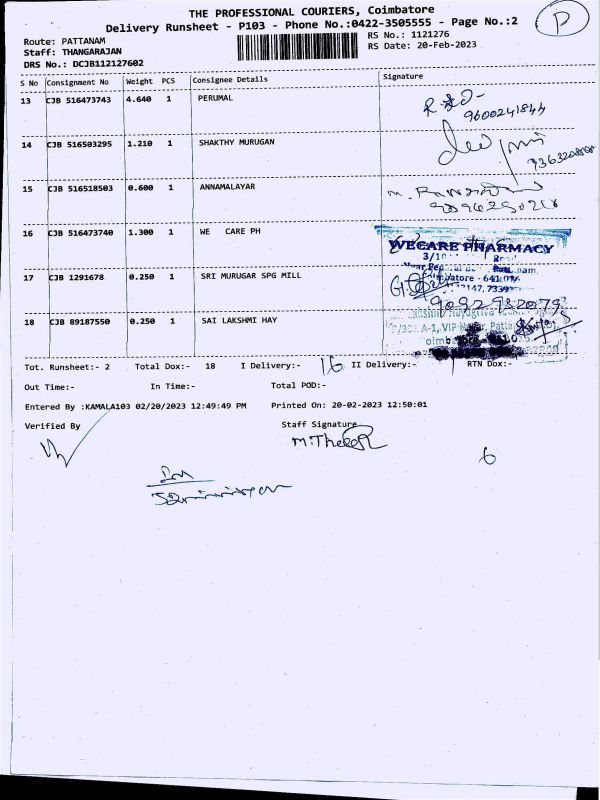 THE PROFESSIONAL COURIERS, Coimbatore
Delivery Runsheet - P103 - Phone No.:0422-3505555 - Page No.:2
P
Route: PATTANAM
RS No.: 1121276
Staff: THANGARAJAN
RS Date: 20-Feb-2023
DRS No.: DCJB112127602
S No Consignment No Weight PCS Consignee Details Signature
13 CJB 516473743 4.640 1 PERUMAL
9600241844
14 CJB 516503295 1.210 1 SHAKTHY MURUGAN
15 CJB 516518503 0.600 1 ANNAMALAYAR
16 CJB 516473740 1.300 1 WE CARE PH
WECARE PHARMACY
17 CJB 1291678 0.250 1 SRI MURUGAR SPG MILL
9092982079
18 CJB 89187550 0.250 1 SAI LAKSHMI HAY
A-1, VIP
Tot. Runsheet:- 2 Total Dox:- 18 I Delivery:- 16 II Delivery:- RTN Dox:-
Out Time:- In Time:- Total POD:-
Entered By :KAMALA103 02/20/2023 12:49:49 PM Printed On: 20-02-2023 12:50:01
Verified By Staff Signature
6